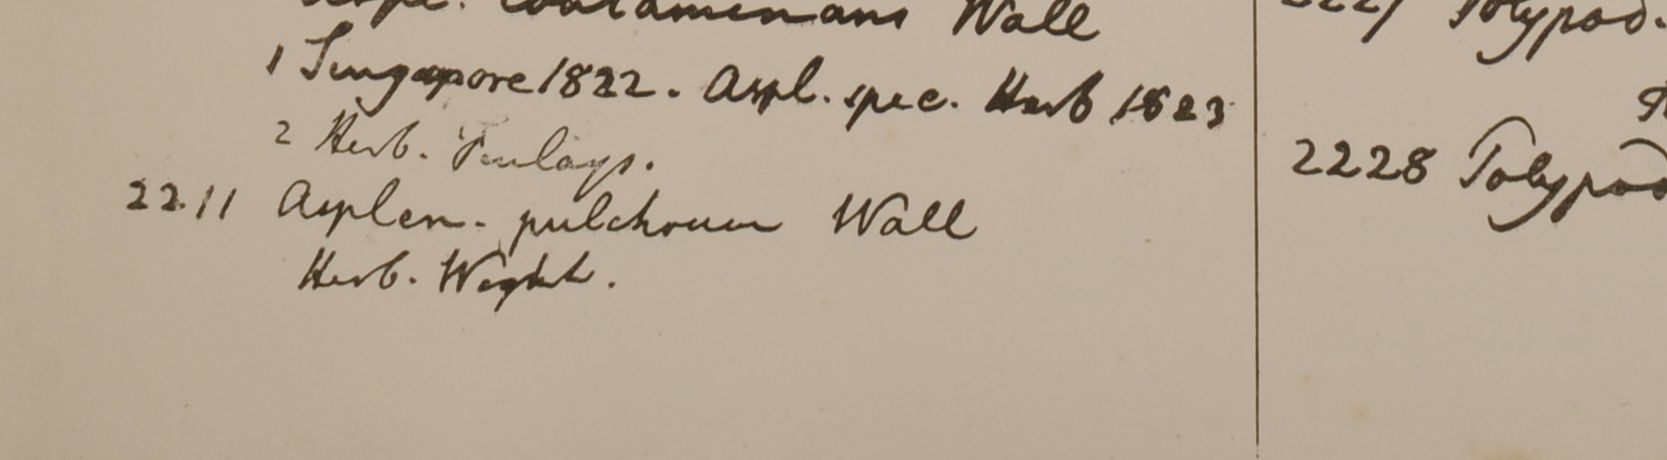 contaminans Wall
1 Singapore 1822. Aspl. spec. Herb 1823
2 Herb. Finlays.
2211 Asplen. pulchrum Wall
Herb. Wight.
2227 Polypod.
2228 Polypod